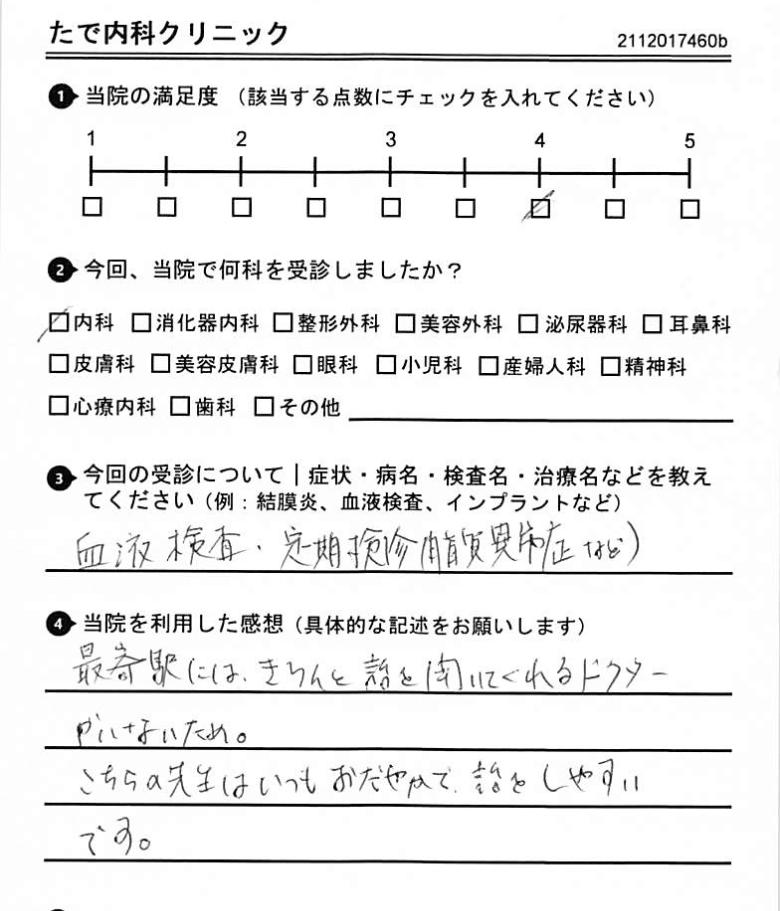 たで内科クリニック
2112017460b
1 当院の満足度 （該当する点数にチェックを入れてください）
1 2 3 4 5
2 今回、当院で何科を受診しましたか？
内科 消化器内科 整形外科 美容外科 泌尿器科 耳鼻科
皮膚科 美容皮膚科 眼科 小児科 産婦人科 精神科
心療内科 歯科 その他
3 今回の受診について｜症状・病名・検査名・治療名などを教え
てください（例：結膜炎、血液検査、インプラントなど）
血液検査・定期検診(脂質異常症など)
4 当院を利用した感想（具体的な記述をお願いします）
最寄駅には、きちんと話を聞いてくれるドクター
がいないため。
こちらの先生はいつもおだやかで、話をしやすい
です。